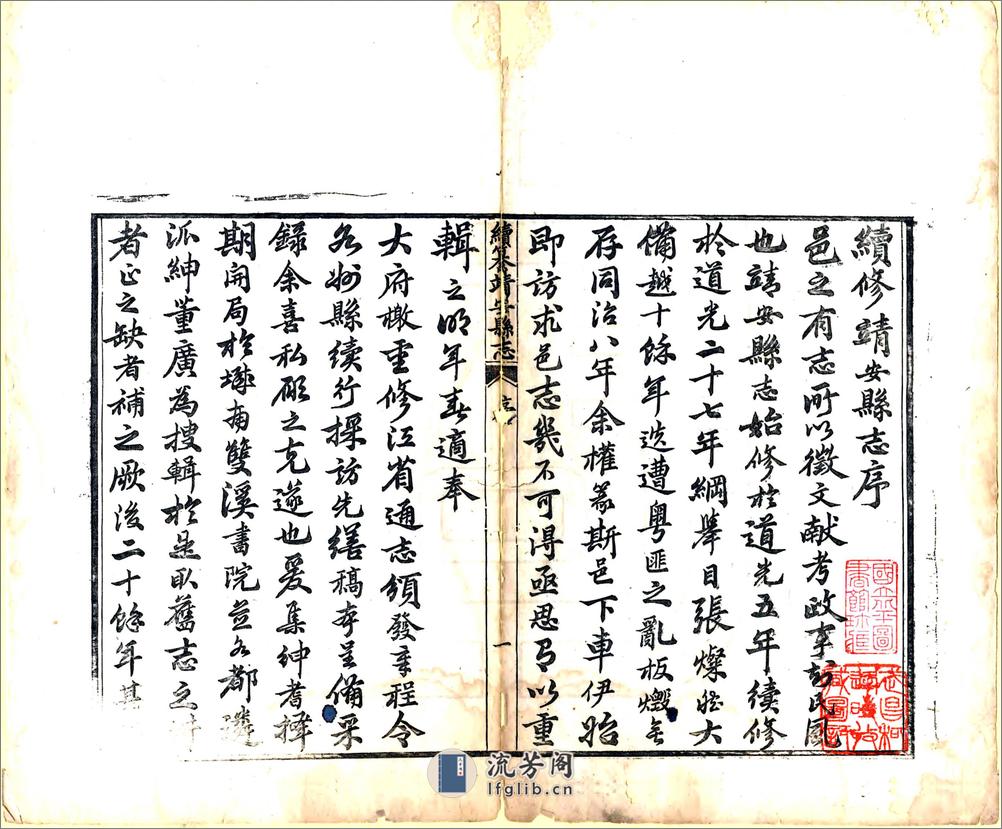 續修靖安縣志序
邑之有志所以徵文獻考政事訪民風
也靖安縣志始修於道光五年續修
於道光二十七年綱舉目張燦然大
備越十餘年迭遭粵匪之亂板燬無
存同治八年余權篆斯邑下車伊始
即訪求邑志幾不可得亟思有以重
續纂靖安縣志
序
一
輯之明年春適奉
大府檄重修江省通志頒發章程令
各州縣續行採訪先繕稿本呈備采
錄余喜私願之克遂也爰集紳耆擇
期開局於城南雙溪書院並各都遴
派紳董廣為搜輯於是取舊志之
者正之缺者補之厥後二十餘年其
流芳阁
lfglib.cn